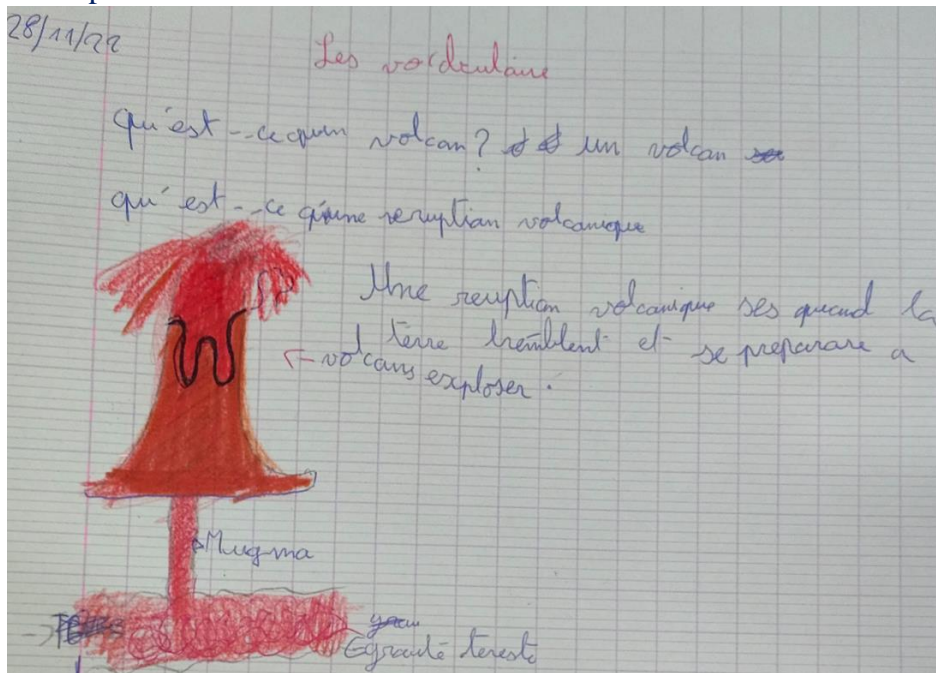 28/11/22
Les vordculaire
qu'est--ce quun volcan? un volcan
qu'est--ce qu'une reruption volcanique
Une reuption volcanique ses quand la
terre tremblent et se preparare a
volcans exploser.
Mugma
terest